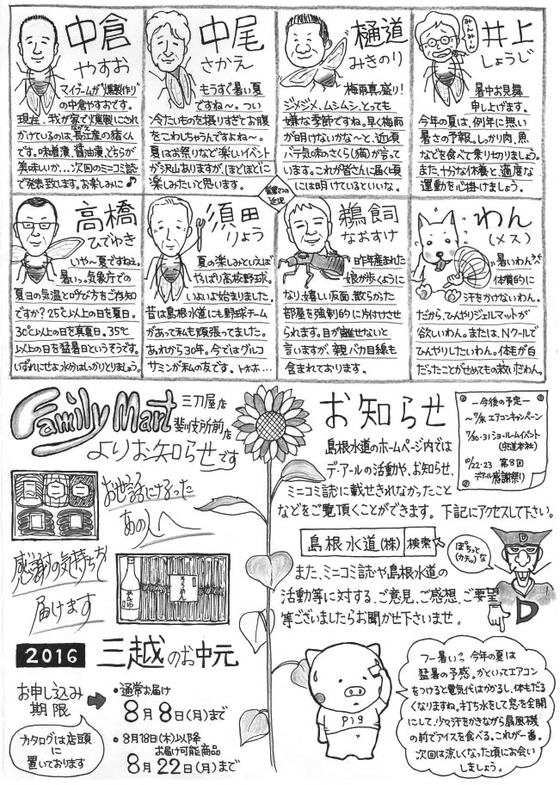 中倉
やすお
マイブームが"燻製作り"
の中倉やすおです。
現在、我が家で燻製にされ
かけているのは、長江産の猪くん
です。味噌漬、醤油漬、どちらが
美味いか…次回のミニコミ誌
で発表致します。お楽しみに♪
中尾
さかえ
もうすぐ暑い夏
ですね〜。つい
冷たいものを摂りすぎてお腹
をこわしちゃうんですよね〜。
夏はお祭りなど楽しいイベント
が沢山ありますが、ほどほどに
楽しみたいと思います。
樋道
みきのり
梅雨真盛り!
ジメジメ、ムシムシ、とっても
嫌な季節ですね。早く梅雨
が明けないかな〜と、近頃
バテ気味のさくら(猫)が言って
います。これが皆さんに届く頃
には明けているといいな。
みーんみーん
井上
しょうじ
暑中お見舞
申し上げます。
今年の夏は、例年に無い
暑さの予報。しっかり肉、魚
などを食べて乗り切りましょう。
また、十分な休養と適度な
運動を心掛けましょう。
営業マンの
近況
高橋
ひでゆき
いや〜夏ですね。
暑いっ。気象庁での
夏日の気温と呼び方をご存知
ですか?25℃以上の日を夏日。
30℃以上の日を真夏日。35℃
以上の日を猛暑日というそうです。
いずれにせよ水分はしっかりとりましょう。
須田
りょう
夏の楽しみといえば
やっぱり高校野球。
いよいよ始まりました。
昔は島根水道にも野球チーム
があって私も頑張ってました。
あれから30年。今ではグルコ
サミンが私の友です。トホホ…
鵜飼
なおすけ
昨年産まれた
娘が歩くように
なり、嬉しい反面、散らかった
部屋を強制的に片付けさせ
られます。目が離せないと
言いますが、親バカ目線も
含まれております。
わん
(メス)
暑いわん。
体質的に
汗をかけないわん。
だから、ひんやりジェルマットが
欲しいわん。または、Nクールで
ひんやりしたいわん。体毛が白
だったことがせめてもの救いだわん。
Family Mart
三刀屋店
斐川役所前店
よりお知らせです
お世話になった
あの人へ
感謝の気持ちを
届けます
2016 三越のお中元
お申し込み
期限
・通常お届け
8月8日(月)まで
・8月18日(木)以降
お届け可能商品
8月22日(月)まで
カタログは店頭
に
置いております
お知らせ
島根水道のホームページ内では
デ・アールの活動や、お知らせ、
ミニコミ誌に載せきれなかったこと
などをご覧頂くことができます。下記にアクセスして下さい。
島根水道(株) 検索
また、ミニコミ誌や島根水道の
活動等に対する、ご意見、ご感想、ご要望
等ございましたらお聞かせ下さいませ。
ー今後の予定ー
エアコンキャンペーン
ショールームイベント
10/22・23 第8回
デ・アール感謝祭り
ぽちっと
D
PIG
フー暑い。今年の夏は
猛暑の予感。かといってエアコン
をつけると電気代はかかるし、体もだる
くなりますね。打ち水をして窓を全開
にして、少々汗をかきながら扇風機
の前でアイスを食べる。これが一番。
次回は涼しくなった頃にお会い
しましょう。